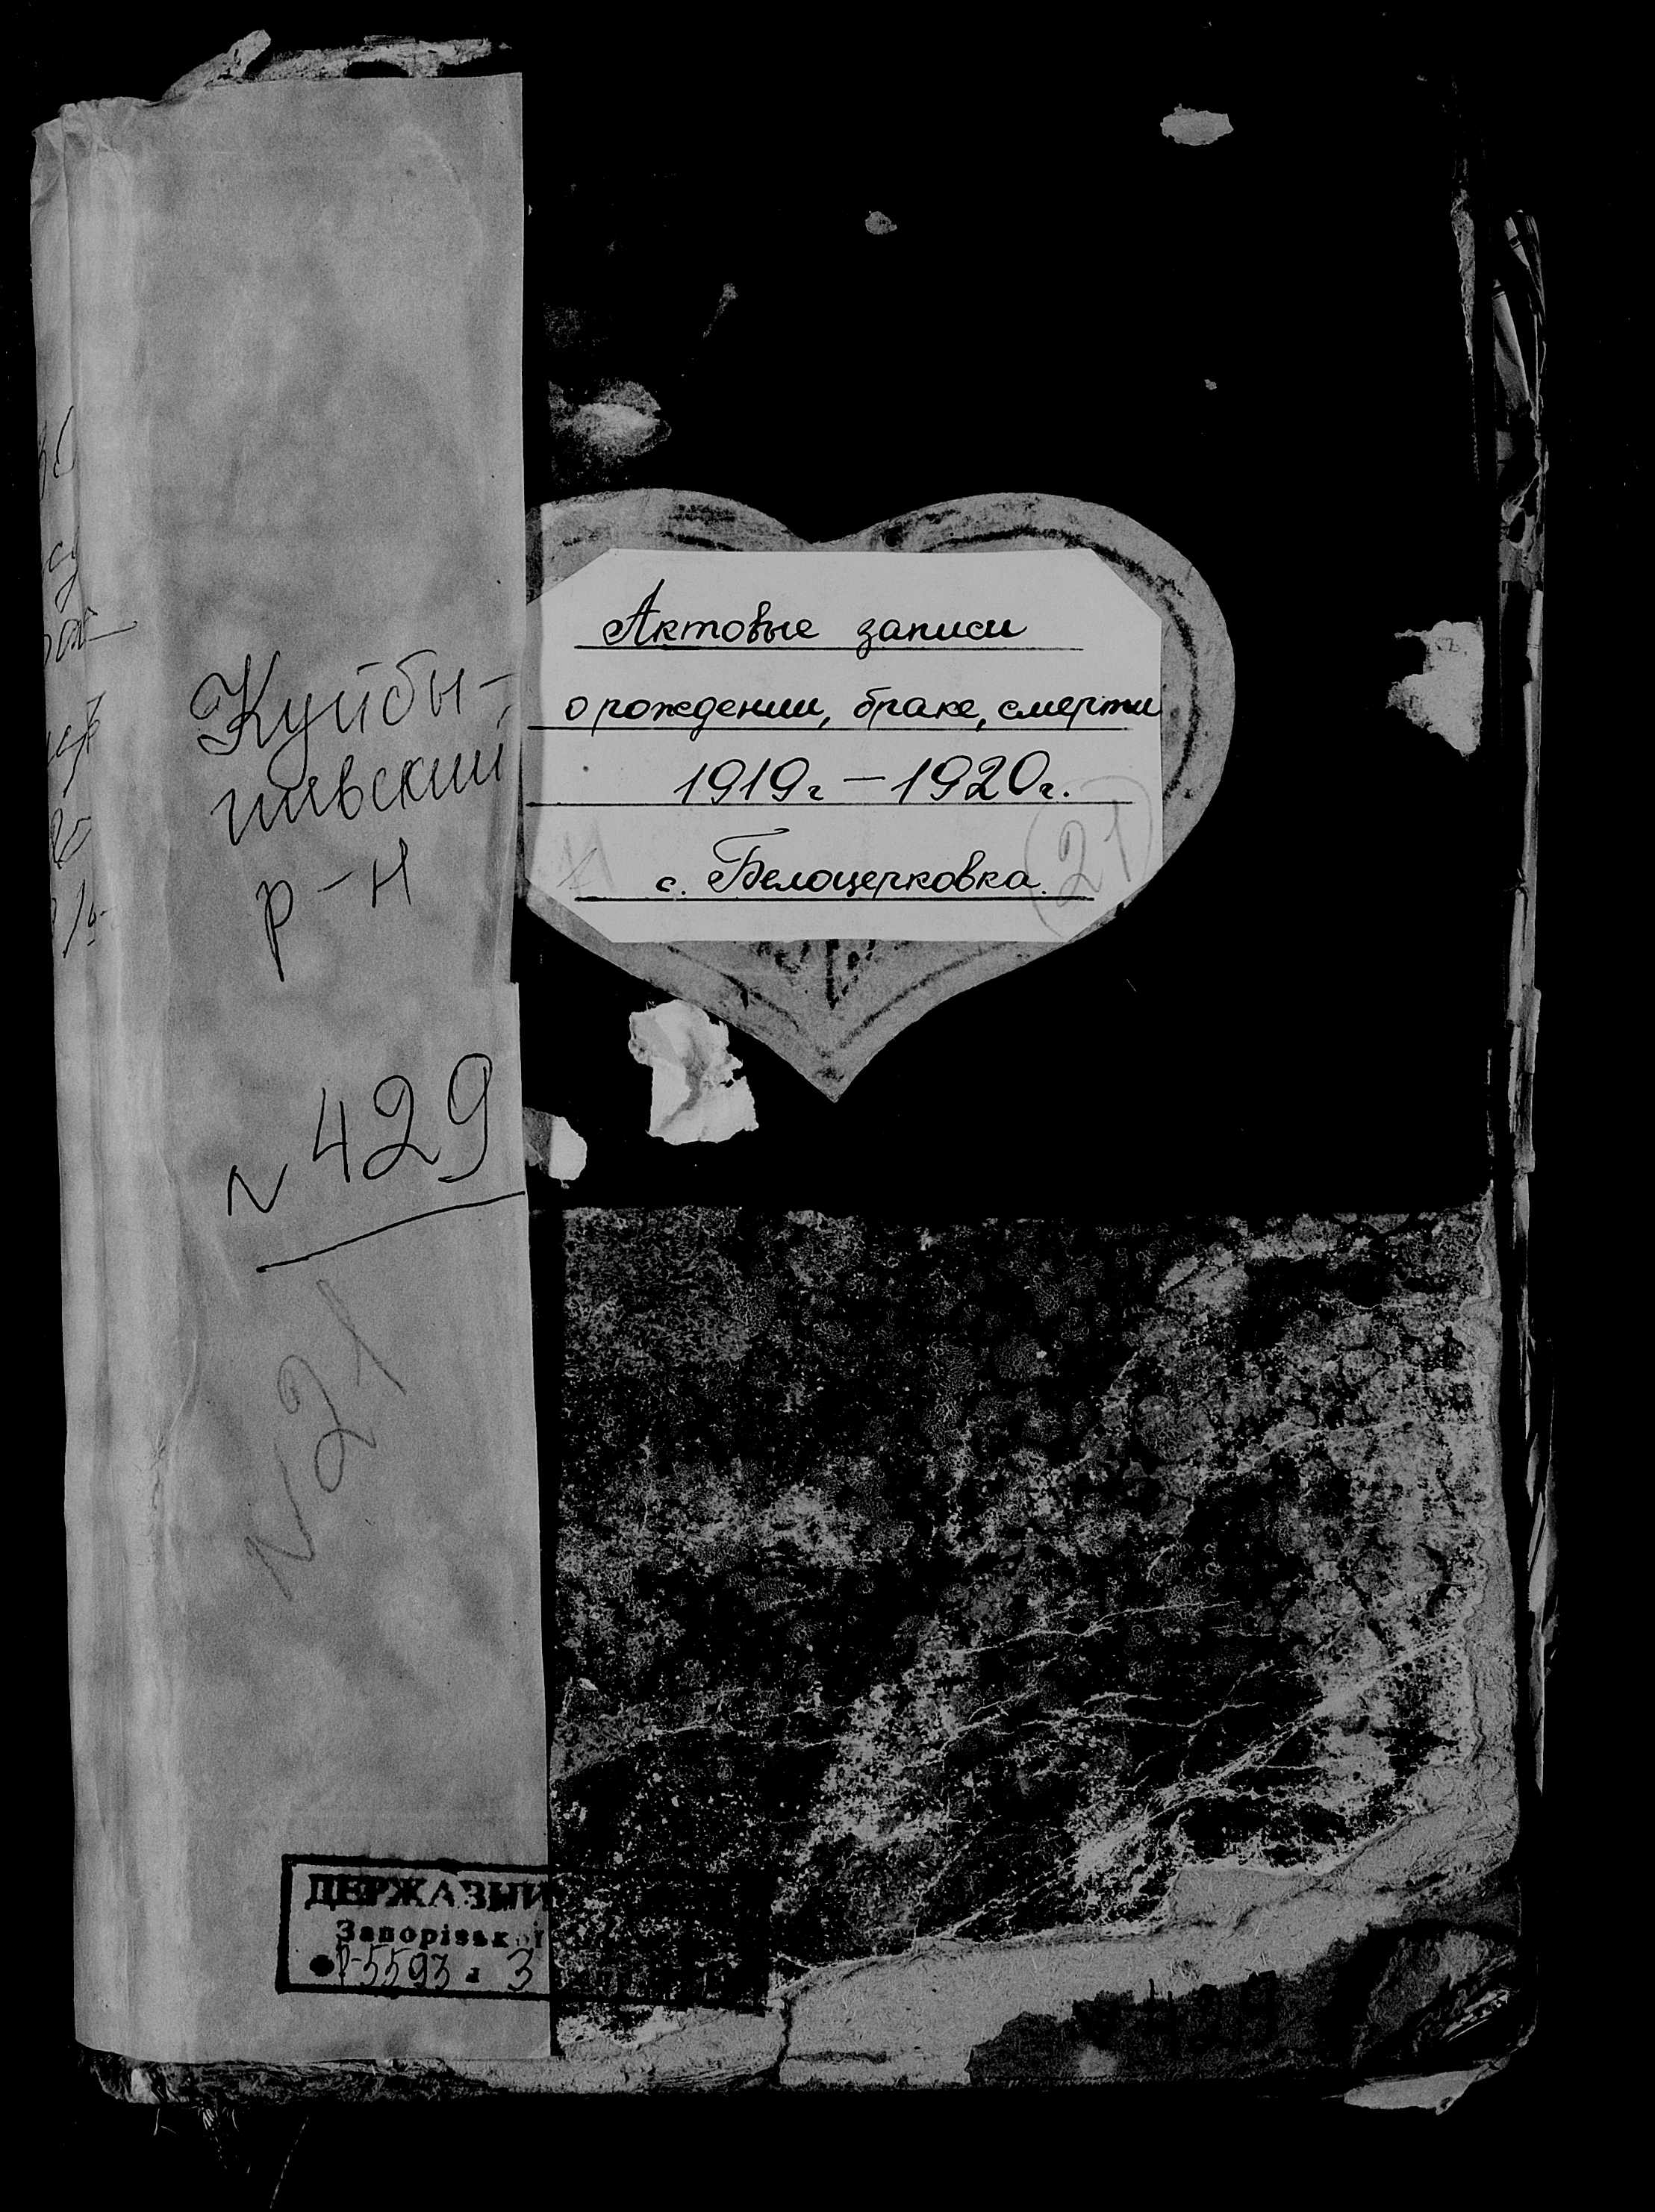 Актовые записи
о рождении, браке, смерти
1919г – 1920г.
с. Белоцерковка.
21
Куйбы-
шевский
р-н
N 429
N 21
ДЕРЖАВНИЙ
Запорізької
Р-5593 3